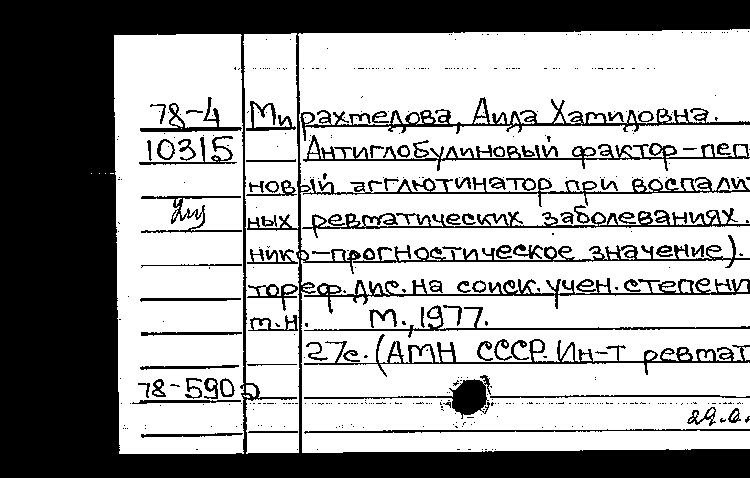 78-4 Мирахмедова, Аида Хамидовна.
10315 Антиглобулиновый фактор-пеп
новый агглютинатор при воспалит
ных ревматических заболеваниях.
нико-прогностическое значение).
тореф. дис. на соиск. учен. степени
м.н. М., 1977.
27с. (АМН СССР. Ин-т ревмат
78-590